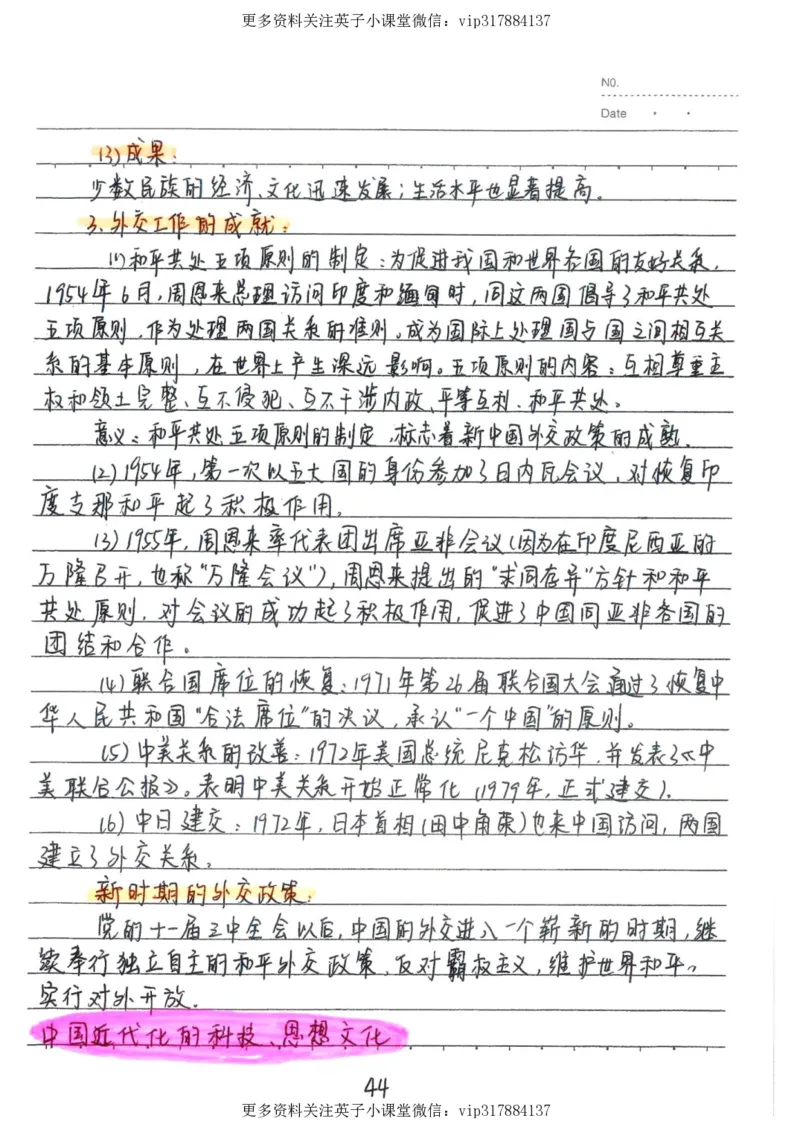 更多资料关注英子小课堂微信：vip317884137
NO.
Date
(3)成果：
少数民族的经济、文化迅速发展；生活水平也显著提高。
3、外交工作的成就：
(1)和平共处五项原则的制定：为促进我国和世界各国的友好关系，
1954年6月，周恩来总理访问印度和缅甸时，同这两国倡导了和平共处
五项原则，作为处理两国关系的准则。成为国际上处理国与国之间相互关
系的基本原则，在世界上产生深远影响。五项原则的内容：互相尊重主
权和领土完整、互不侵犯、互不干涉内政、平等互利、和平共处。
意义：和平共处五项原则的制定，标志着新中国外交政策的成熟。
(2)1954年，第一次以五大国的身份参加了日内瓦会议，对恢复印
度支那和平起了积极作用。
(3)1955年，周恩来率代表团出席亚非会议(因为在印度尼西亚的
万隆召开，也称“万隆会议”)，周恩来提出的“求同存异”方针和和平
共处原则，对会议的成功起了积极作用，促进了中国同亚非各国的
团结和合作。
(4)联合国席位的恢复：1971年第26届联合国大会通过了恢复中
华人民共和国“合法席位”的决议，承认“一个中国”的原则。
(5)中美关系的改善：1972年美国总统尼克松访华，并发表了《中
美联合公报》。表明中美关系开始正常化(1979年，正式建交)．
(6)中日建交：1972年，日本首相(田中角荣)也来中国访问，两国
建立了外交关系。
新时期的外交政策：
党的十一届三中全会以后，中国的外交进入一个崭新的时期，继
续奉行独立自主的和平外交政策，反对霸权主义，维护世界和平。
实行对外开放．
中国近代化的科技、思想文化
44
更多资料关注英子小课堂微信：vip317884137